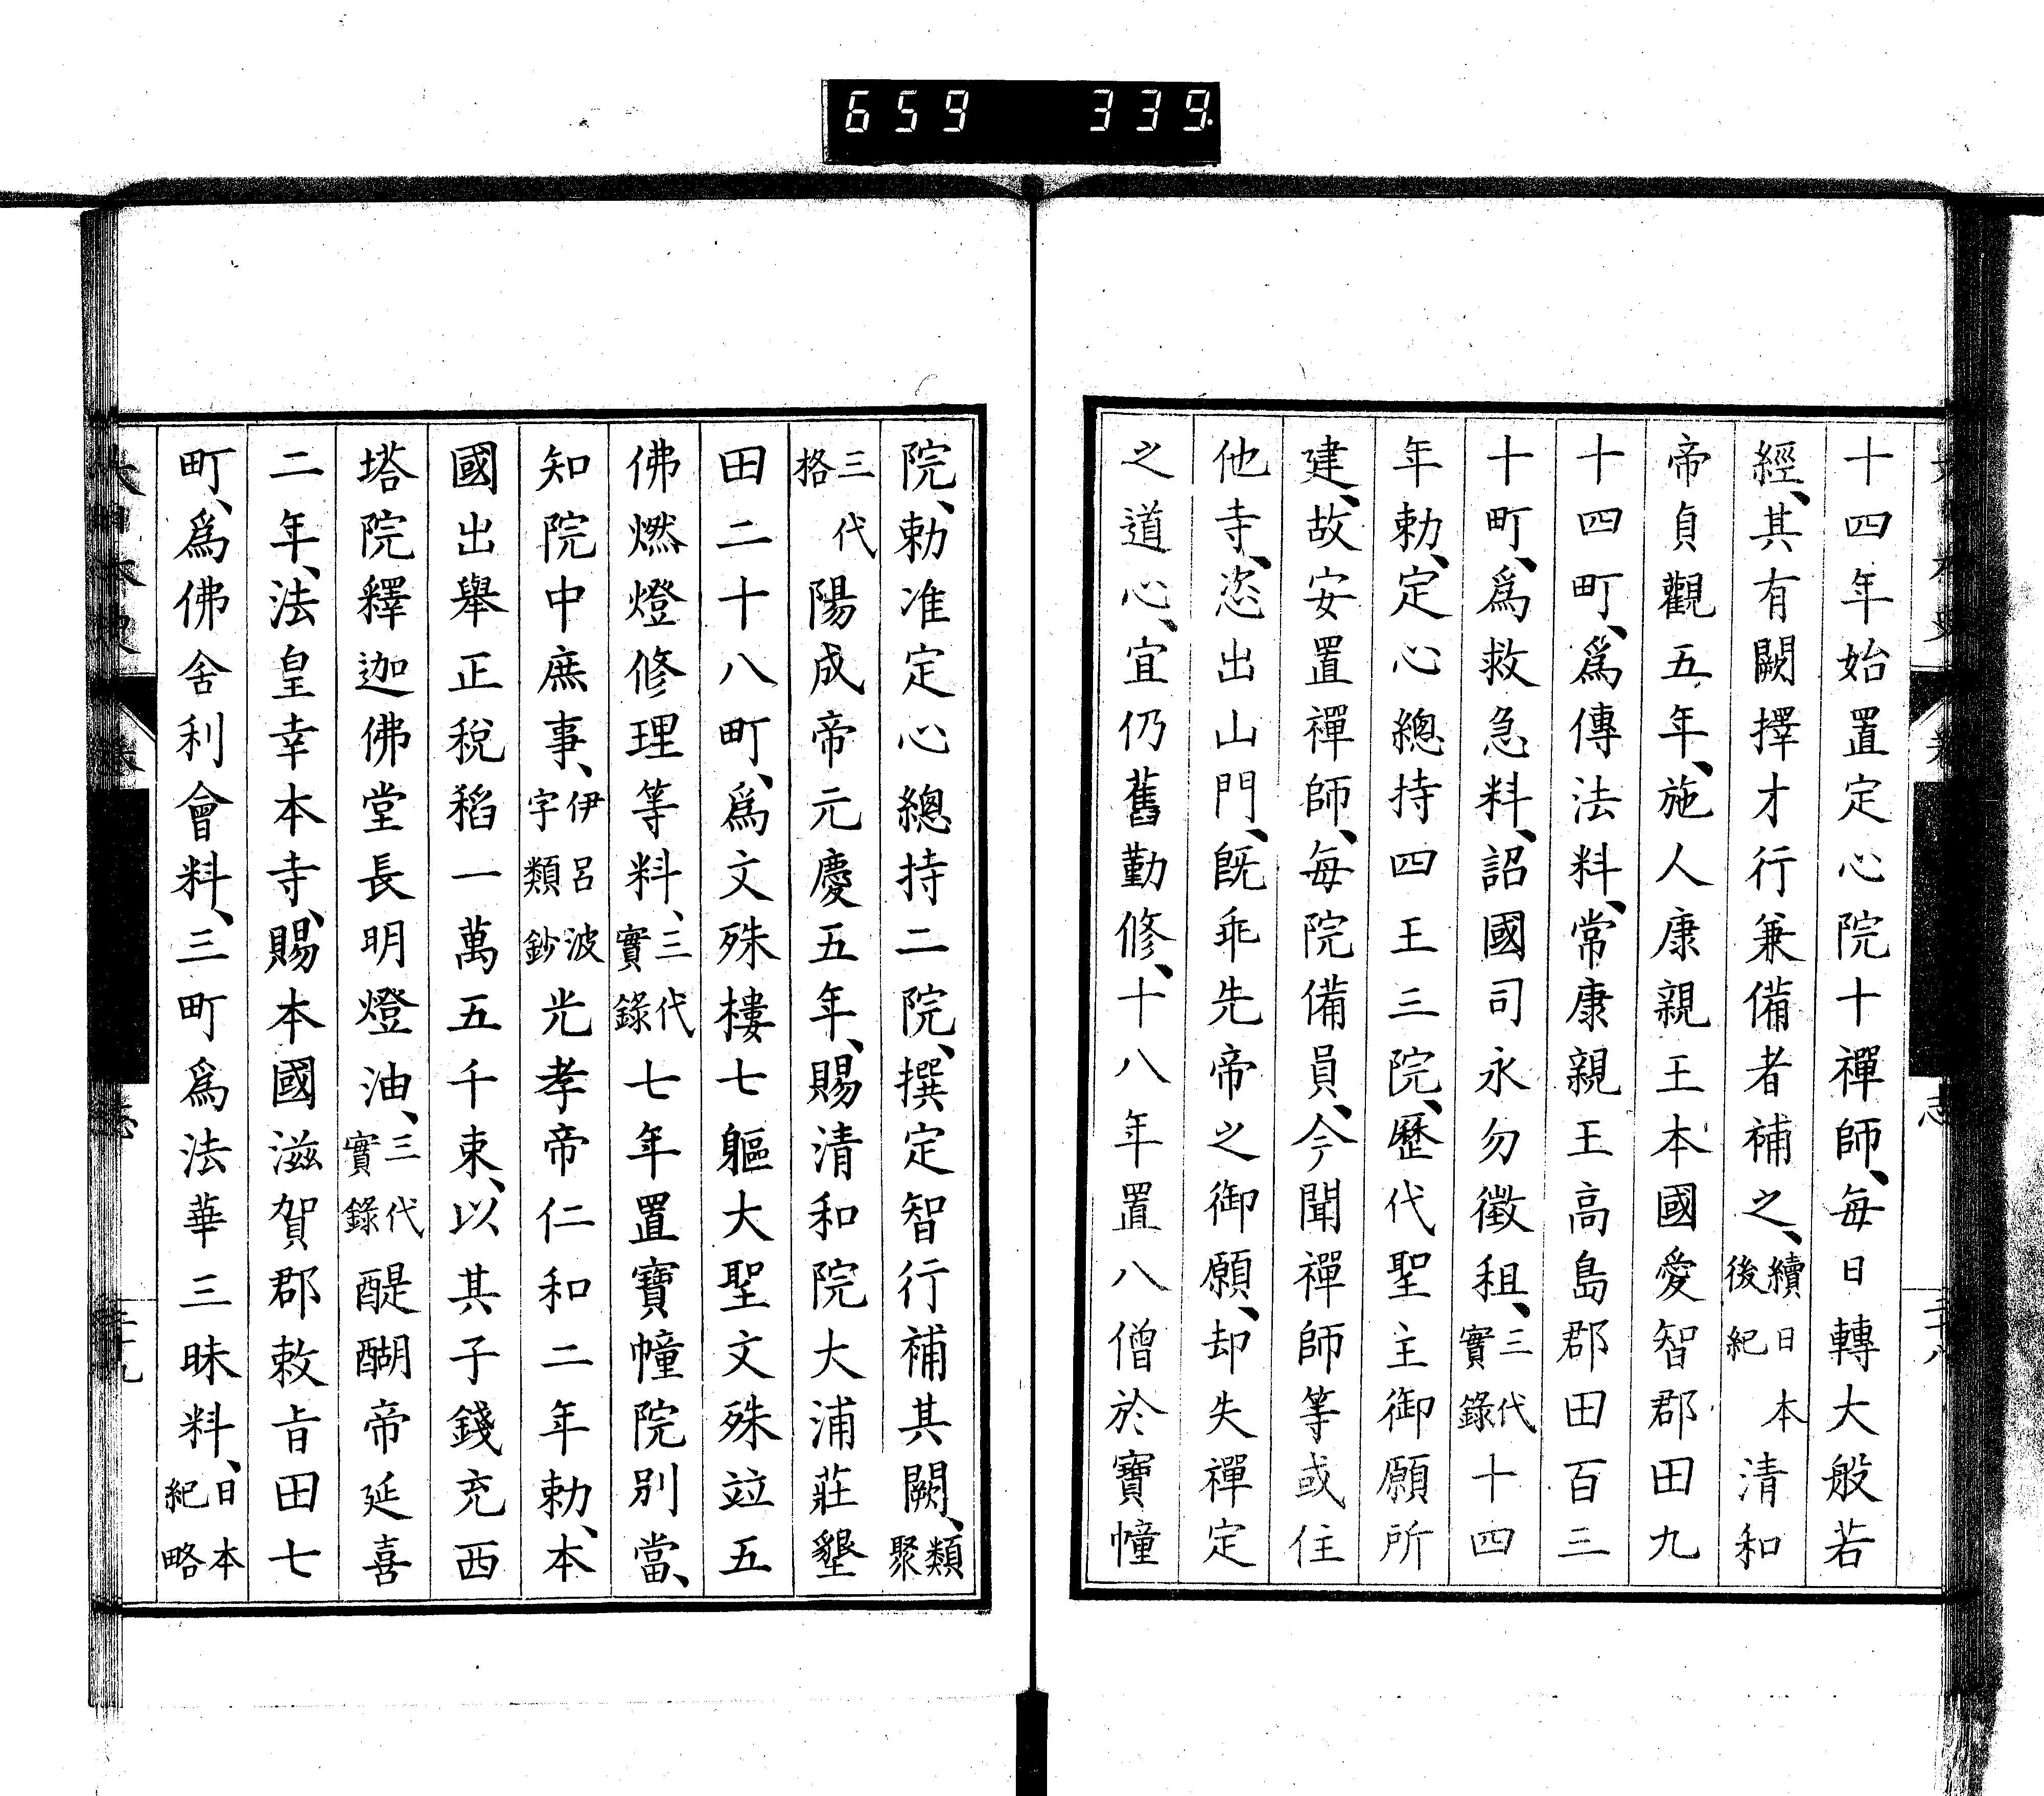 659 339.
十四年始置定心院十禪師、每日轉大般若
經、其有闕擇才行兼備者補之、續日本後紀清和
帝貞觀五年、施人康親王本國愛智郡田九
十四町、爲傳法料、常康親王高島郡田百三
十町、爲救急料、詔國司永勿徵租、三代實錄十四
年勅、定心總持四王三院、歷代聖主御願所
建、故安置禪師、每院備員、今聞禪師等或住
他寺、恣出山門、既乖先帝之御願、却失禪定
之道心、宜仍舊勤修、十八年置八僧於寶幢
院、勅准定心總持二院、撰定智行補其闕、類聚
三代格陽成帝元慶五年、賜清和院大浦莊墾
田二十八町、爲文殊樓七軀大聖文殊竝五
佛燃燈修理等料、三代實錄七年置寶幢院別當、
知院中庶事、伊呂波字類鈔光孝帝仁和二年勅、本
國出舉正稅稻一萬五千束、以其子錢充西
塔院釋迦佛堂長明燈油、三代實錄醍醐帝延喜
二年、法皇幸本寺、賜本國滋賀郡敕旨田七
町、爲佛舍利會料、三町爲法華三昧料、日本紀略